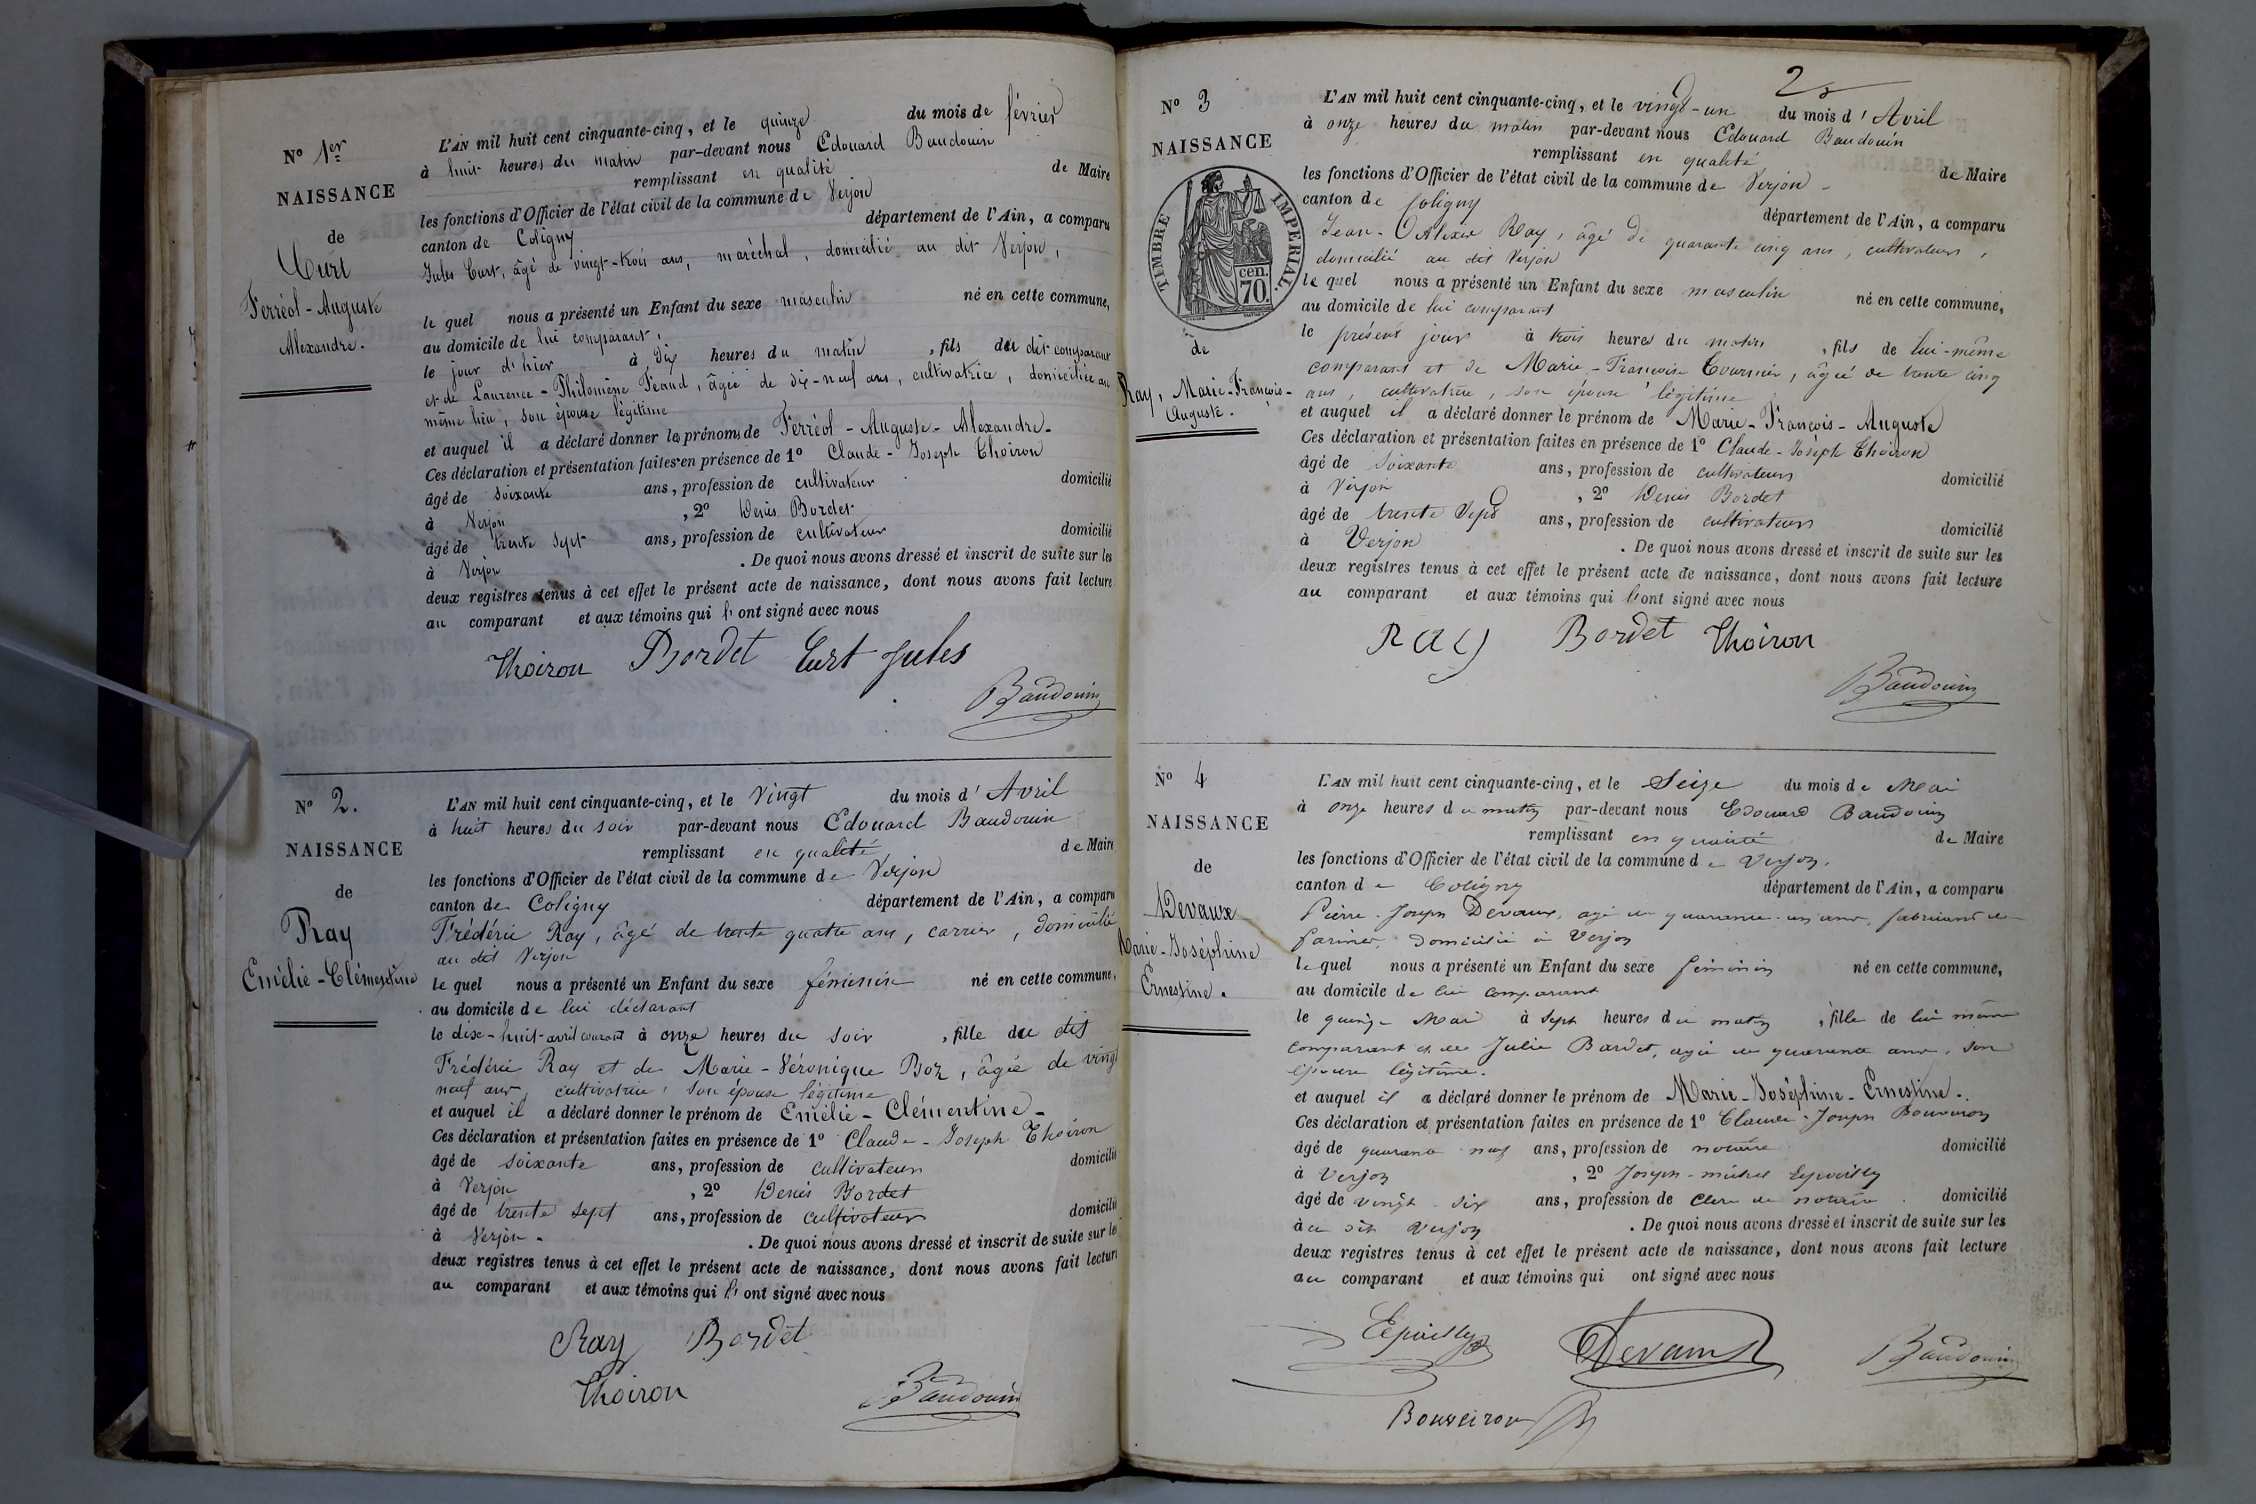 N° 1er
NAISSANCE
de
Curt
Ferréol-Auguste
Alexandre.
L'AN mil huit cent cinquante-cinq, et le quinze du mois de février
à huit heures du matin par-devant nous Edouard Baudouin
remplissant en qualité de Maire
les fonctions d'Officier de l'état civil de la commune de Verjon
canton de Coligny département de l'Ain, a comparu
Jules Curt, âgé de vingt-trois ans, maréchal, domicilié au dit Verjon,
le quel nous a présenté un Enfant du sexe masculin né en cette commune,
au domicile de lui comparant,
le jour d'hier à dix heures du matin, fils du dit comparant
et de Laurence-Philomène Féaud, âgée de dix-neuf ans, cultivatrice, domiciliée au
même lieu, son épouse légitime
et auquel il a déclaré donner les prénoms de Ferréol-Auguste-Alexandre-
Ces déclaration et présentation faites en présence de 1° Claude-Joseph Thoiron
âgé de soixante ans, profession de cultivateur domicilié
à Verjon, 2° Denis Bordet
âgé de trente sept ans, profession de cultivateur domicilié
à Verjon. De quoi nous avons dressé et inscrit de suite sur les
deux registres tenus à cet effet le présent acte de naissance, dont nous avons fait lecture
au comparant et aux témoins qui l'ont signé avec nous
Thoiron Bordet Curt Jules
Baudouin
N° 2.
NAISSANCE
de
Ray
Emélie-Clémentine
L'AN mil huit cent cinquante-cinq, et le Vingt du mois d'Avril
à huit heures du soir par-devant nous Edouard Baudouin
remplissant en qualité de Maire
les fonctions d'Officier de l'état civil de la commune de Verjon
canton de Coligny département de l'Ain, a comparu
Frédéric Ray, âgé de trente quatre ans, carrier, domicilié
au dit Verjon
le quel nous a présenté un Enfant du sexe féminin né en cette commune,
au domicile de lui déclarant
le dix-huit avril courant à onze heures du soir, fille du dit
Frédéric Ray et de Marie-Véronique Boz, âgée de vingt
neuf ans, cultivatrice, son épouse légitime
et auquel il a déclaré donner le prénom de Emélie-Clémentine-
Ces déclaration et présentation faites en présence de 1° Claude-Joseph Thoiron
âgé de soixante ans, profession de cultivateur domicilié
à Verjon, 2° Denis Bordet
âgé de trente sept ans, profession de cultivateur domicilié
à Verjon. De quoi nous avons dressé et inscrit de suite sur les
deux registres tenus à cet effet le présent acte de naissance, dont nous avons fait lecture
au comparant et aux témoins qui l'ont signé avec nous
Ray Bordet
Thoiron Baudouin
2
N° 3
NAISSANCE
TIMBRE IMPERIAL.
cen.
70.
de
Ray, Marie-François-
Auguste.
L'AN mil huit cent cinquante-cinq, et le vingt-un du mois d'Avril
à onze heures du matin par-devant nous Edouard Baudouin
remplissant en qualité de Maire
les fonctions d'Officier de l'état civil de la commune de Verjon
canton de Coligny département de l'Ain, a comparu
Jean- Ray, âgé de quarante cinq ans, cultivateur,
domicilié au dit Verjon
le quel nous a présenté un Enfant du sexe masculin né en cette commune,
au domicile de lui comparant
le présent jour à trois heures du matin, fils de lui-même
comparant et de Marie-Françoise Tournier, âgée de trente cinq
ans, cultivatrice, son épouse légitime
et auquel il a déclaré donner le prénom de Marie-François-Auguste
Ces déclaration et présentation faites en présence de 1° Claude-Joseph Thoiron
âgé de soixante ans, profession de cultivateur domicilié
à Verjon, 2° Denis Bordet
âgé de trente sept ans, profession de cultivateur domicilié
à Verjon. De quoi nous avons dressé et inscrit de suite sur les
deux registres tenus à cet effet le présent acte de naissance, dont nous avons fait lecture
au comparant et aux témoins qui l'ont signé avec nous
Ray Bordet Thoiron
Baudouin
N° 4
NAISSANCE
de
Devaux
Marie-Joséphine
Ernestine.
L'AN mil huit cent cinquante-cinq, et le Seize du mois de Mai
à onze heures du matin par-devant nous Edouard Baudouin
remplissant en qualité de Maire
les fonctions d'Officier de l'état civil de la commune de Verjon.
canton de Coligny département de l'Ain, a comparu
Pierre-Joseph Devaux, agé de quarante-un ans, fabricant de
farines, domicilié à Verjon
le quel nous a présenté un Enfant du sexe féminin né en cette commune,
au domicile de lui comparant
le quinze Mai à sept heures du matin, fille de lui même
comparant et de Julie Bardet, agée de quarante ans, son
épouse légitime.
et auquel il a déclaré donner le prénom de Marie-Joséphine-Ernestine.
Ces déclaration et présentation faites en présence de 1° Claude-Joseph Bouveiron
âgé de quarante neuf ans, profession de notaire domicilié
à Verjon, 2° Joseph-michel Epailly
âgé de vingt-six ans, profession de clerc de notaire domicilié
à ce dit Verjon. De quoi nous avons dressé et inscrit de suite sur les
deux registres tenus à cet effet le présent acte de naissance, dont nous avons fait lecture
au comparant et aux témoins qui ont signé avec nous
Epailly Devaux Baudouin
Bouveiron